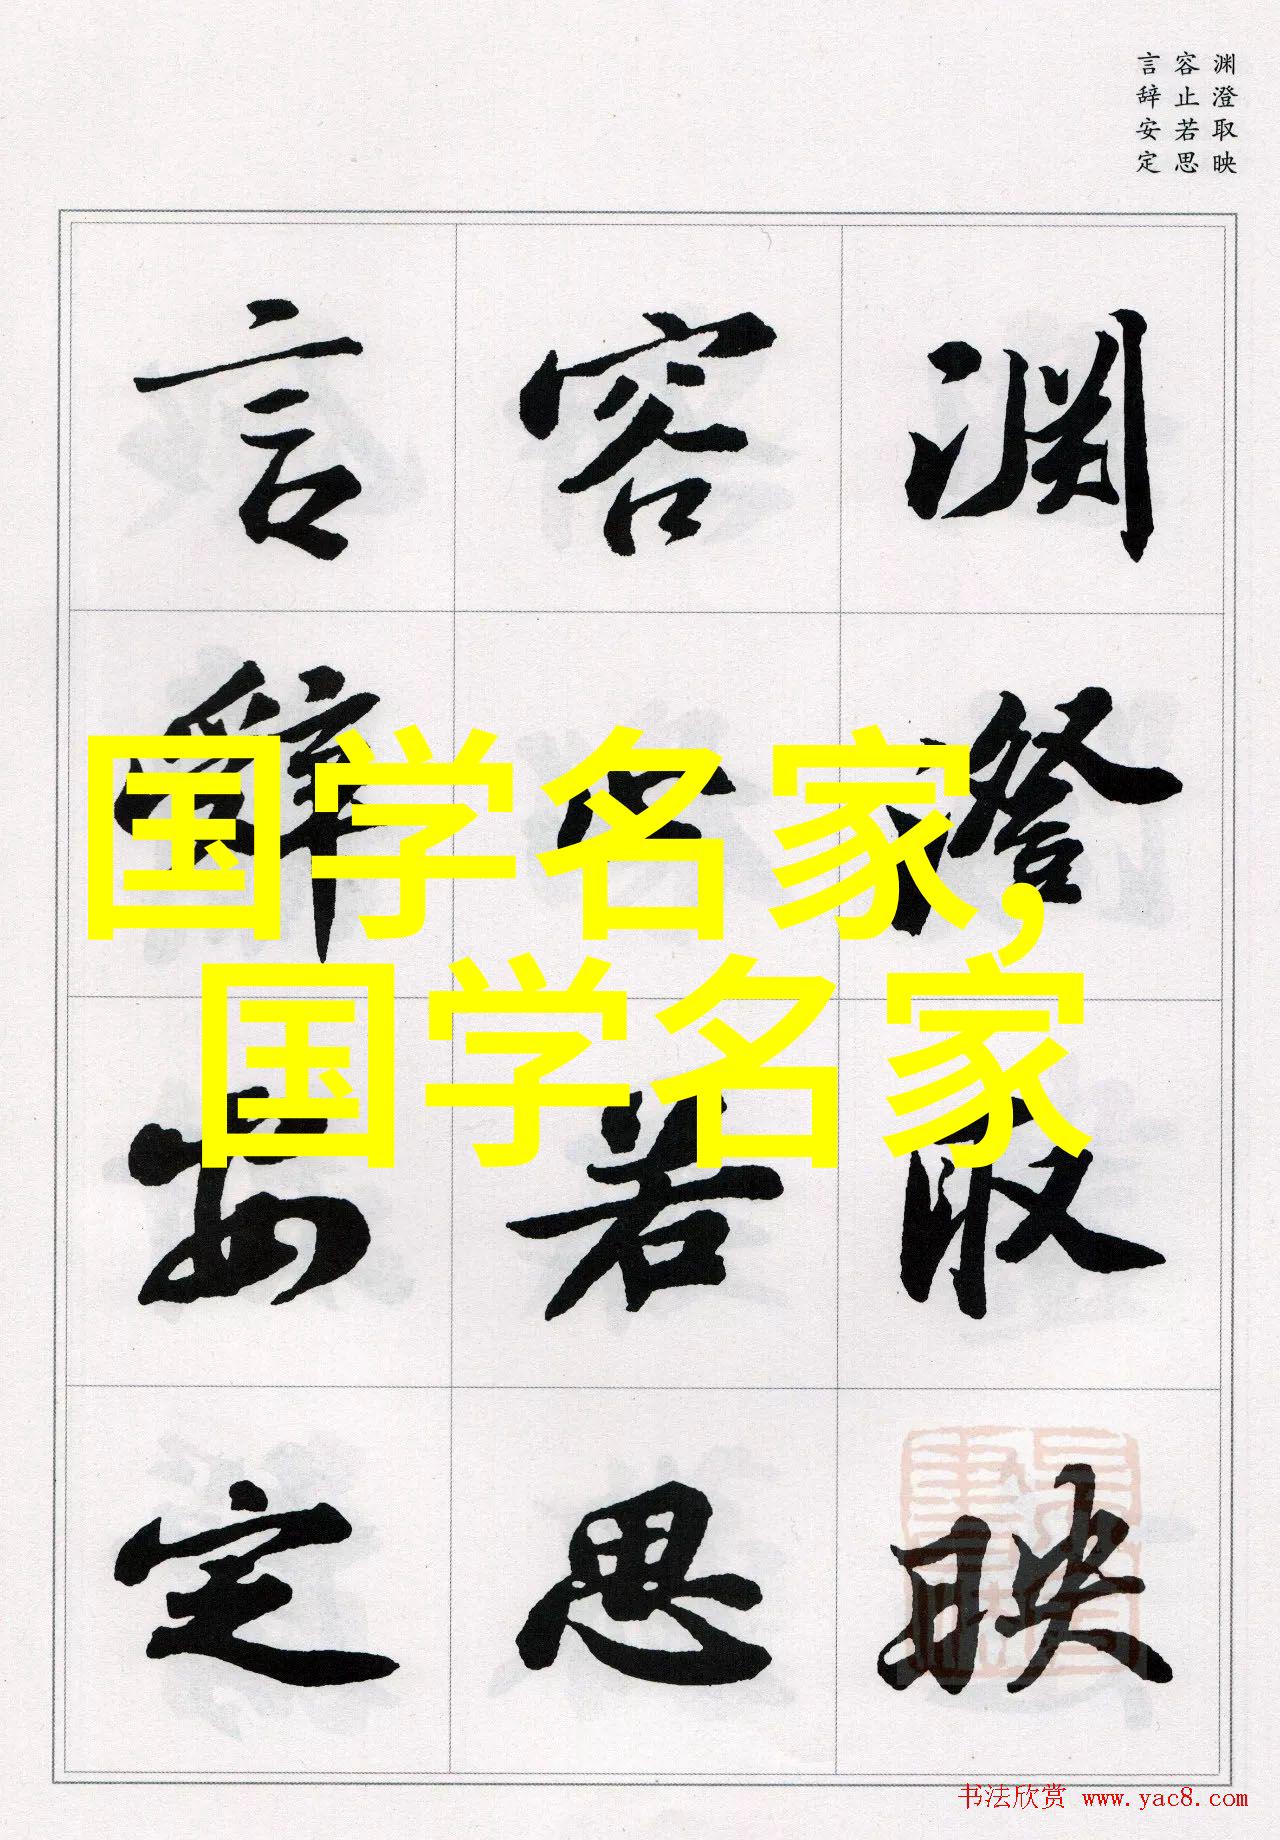 渊澄取映
容止若思
言辞安定
渊澄取映
容止若思
言辞安定
国学名家,
国学名家
书法欣赏 www.yac8.com